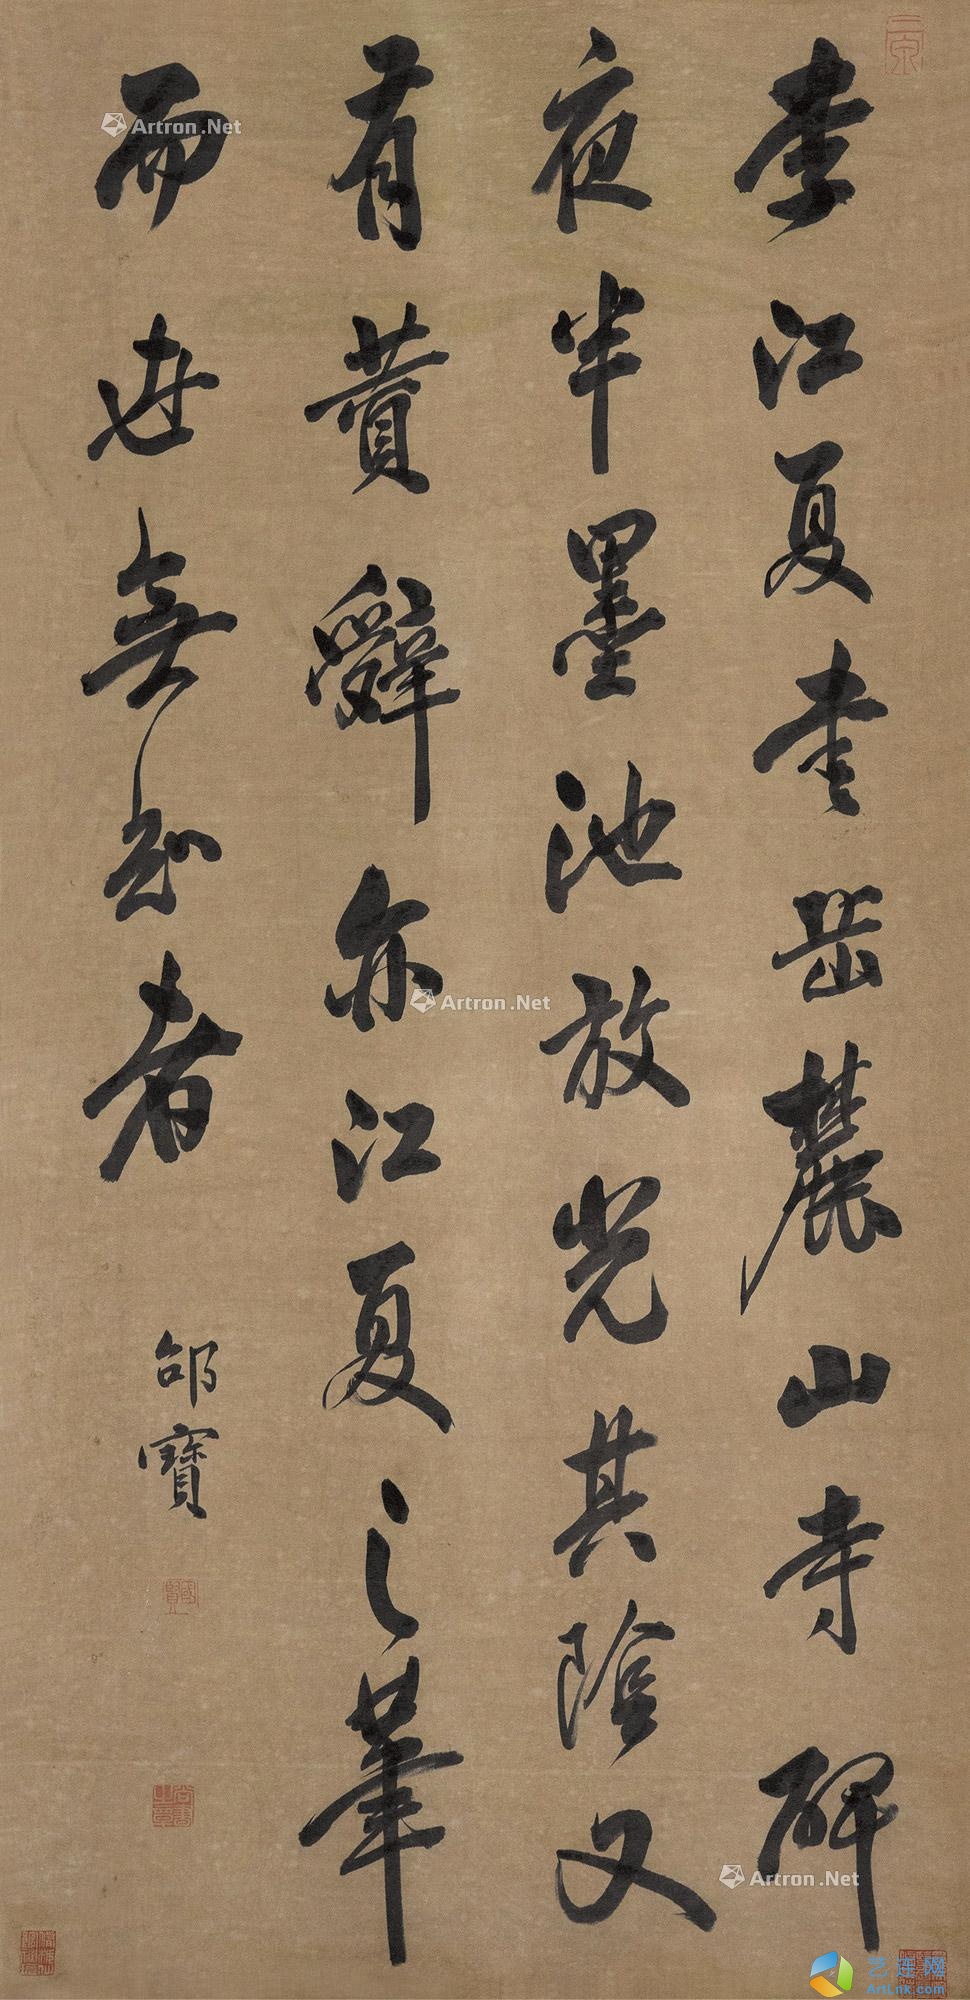 李江夏書岳麓山寺碑
夜半墨池放光其陰又
有黄辭亦江夏之筆
而世無知者
邵寶
國賢
Artron.Net
Artron.Net
Artron.Net
艺连网
ArtLink.com